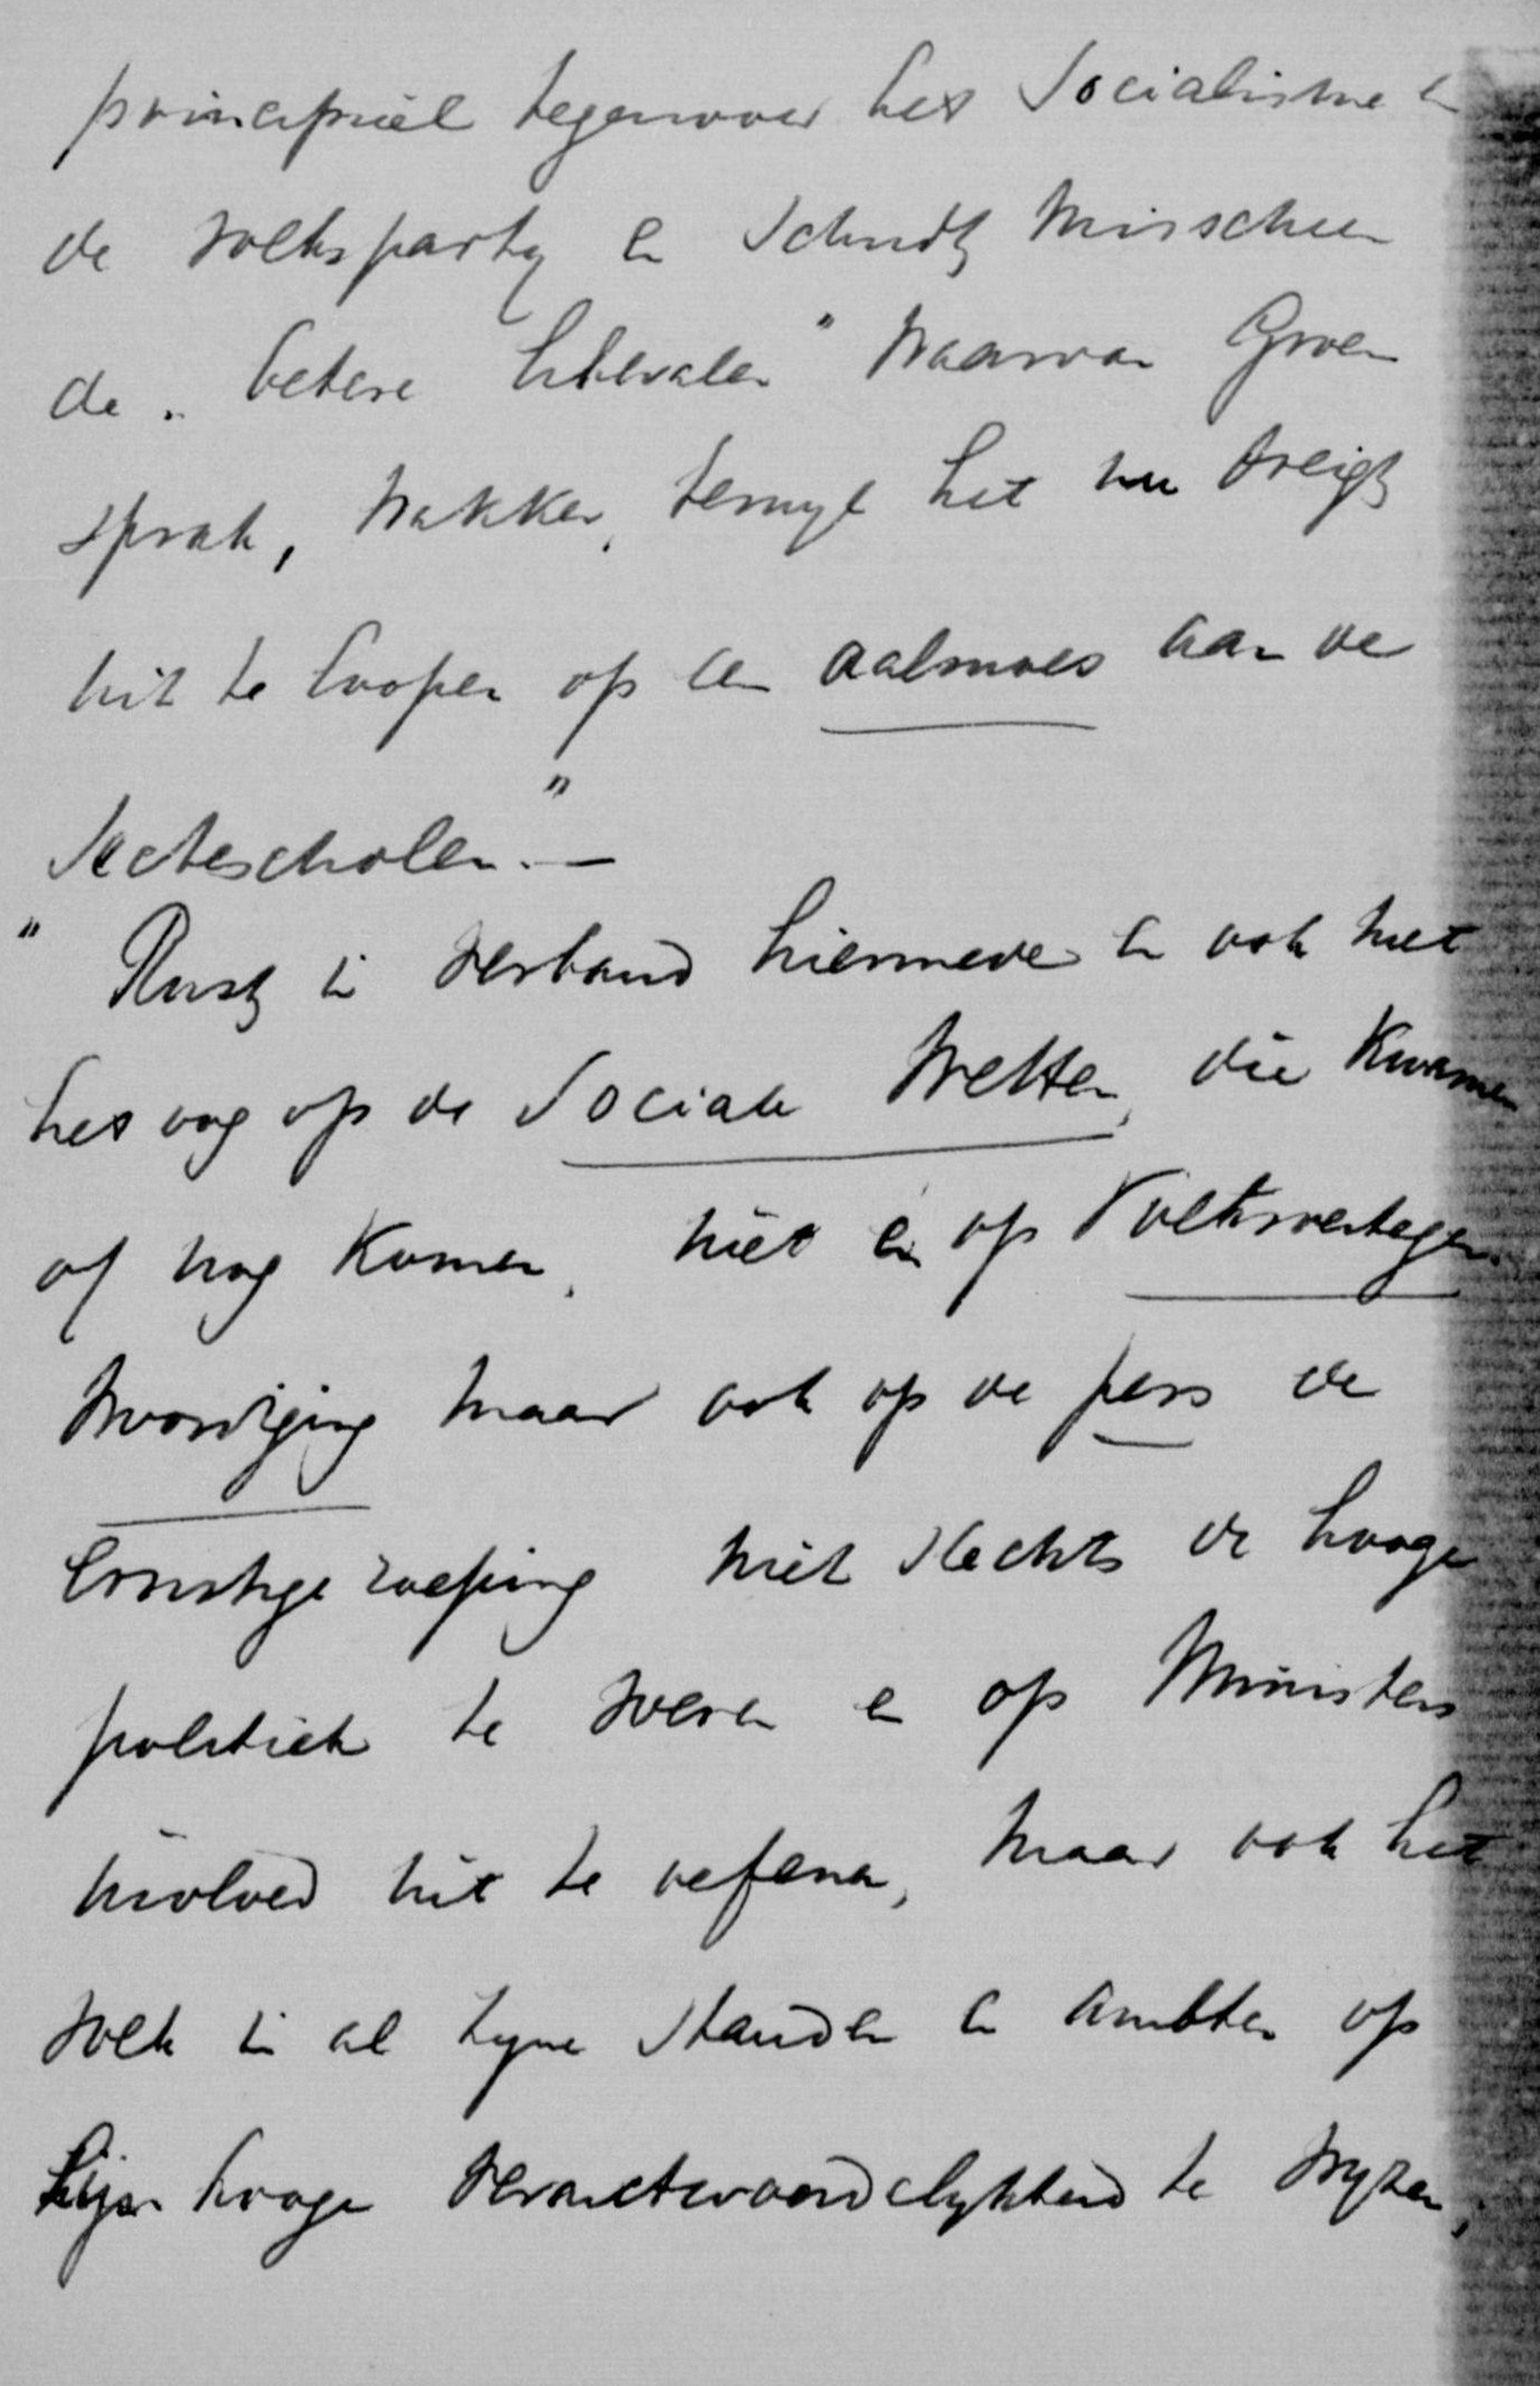 principieel tegenover het Socialisme en
de volksparty en schudt misschien
de „betere liberalen" waarvan Groen
sprak, wakker, terwyl het nu dreigt
uit te loopen op een aalmoes aan de
Sectescholen."—
" Rust in verband hiermede en ook met
het oog op de Sociale Wetten, die kwamen
of nog komen, niet en op Volksvertegen-
woordiging maar ook op de pers de
ernstige roeping niet slechts de hooge
politiek te voeren en op Ministers
invloed uit te oefenen, maar ook het
volk in al zyne standen en ambten op
zijn hooge verantwoordelykheid te wyzen,